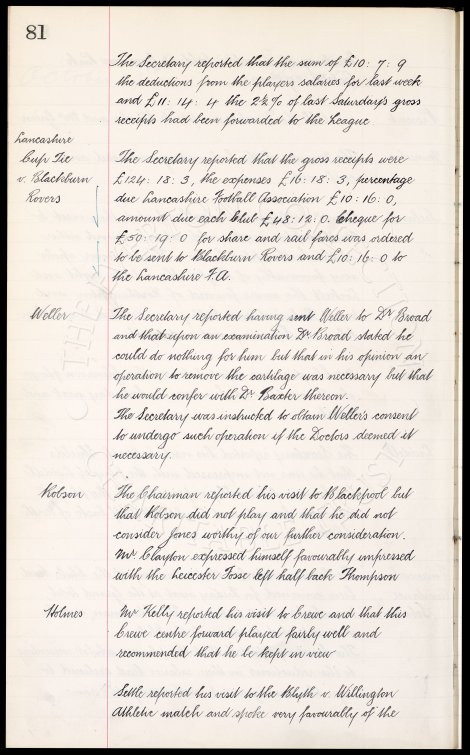 81
The Secretary reported that the sum of £10 : 7 : 9
the deductions from the players salaries for last week
and £11 : 14 : 4 the 2½% of last Saturday's gross
receipts had been forwarded to the League.
Lancashire
Cup Tie
v. Blackburn
Rovers
The Secretary reported that the gross receipts were
£124 : 18 : 3, the expenses £16 : 18 : 3, percentage
due Lancashire Football Association £10 : 16 : 0,
amount due each Club £48 : 12 : 0. Cheque for
£50 : 19 : 0 for share and rail fares was ordered
to be sent to Blackburn Rovers and £10 : 16 : 0 to
the Lancashire F.A.
Weller
The Secretary reported having sent Weller to Dr Broad
and that upon an examination Dr Broad stated he
could do nothing for him but that in his opinion an
operation to remove the cartilage was necessary but that
he would confer with Dr Baxter thereon.
The Secretary was instructed to obtain Weller's consent
to undergo such operation if the Doctors deemed it
necessary.
Robson
The Chairman reported his visit to Blackpool but
that Robson did not play and that he did not
consider Jones worthy of our further consideration.
Mr Clayton expressed himself favourably impressed
with the Leicester Fosse left half back Thompson
Holmes
Mr Kelly reported his visit to Crewe and that this
Crewe centre forward played fairly well and
recommended that he be kept in view
Settle reported his visit to the Blyth v. Willington
Athletic match and spoke very favourably of the